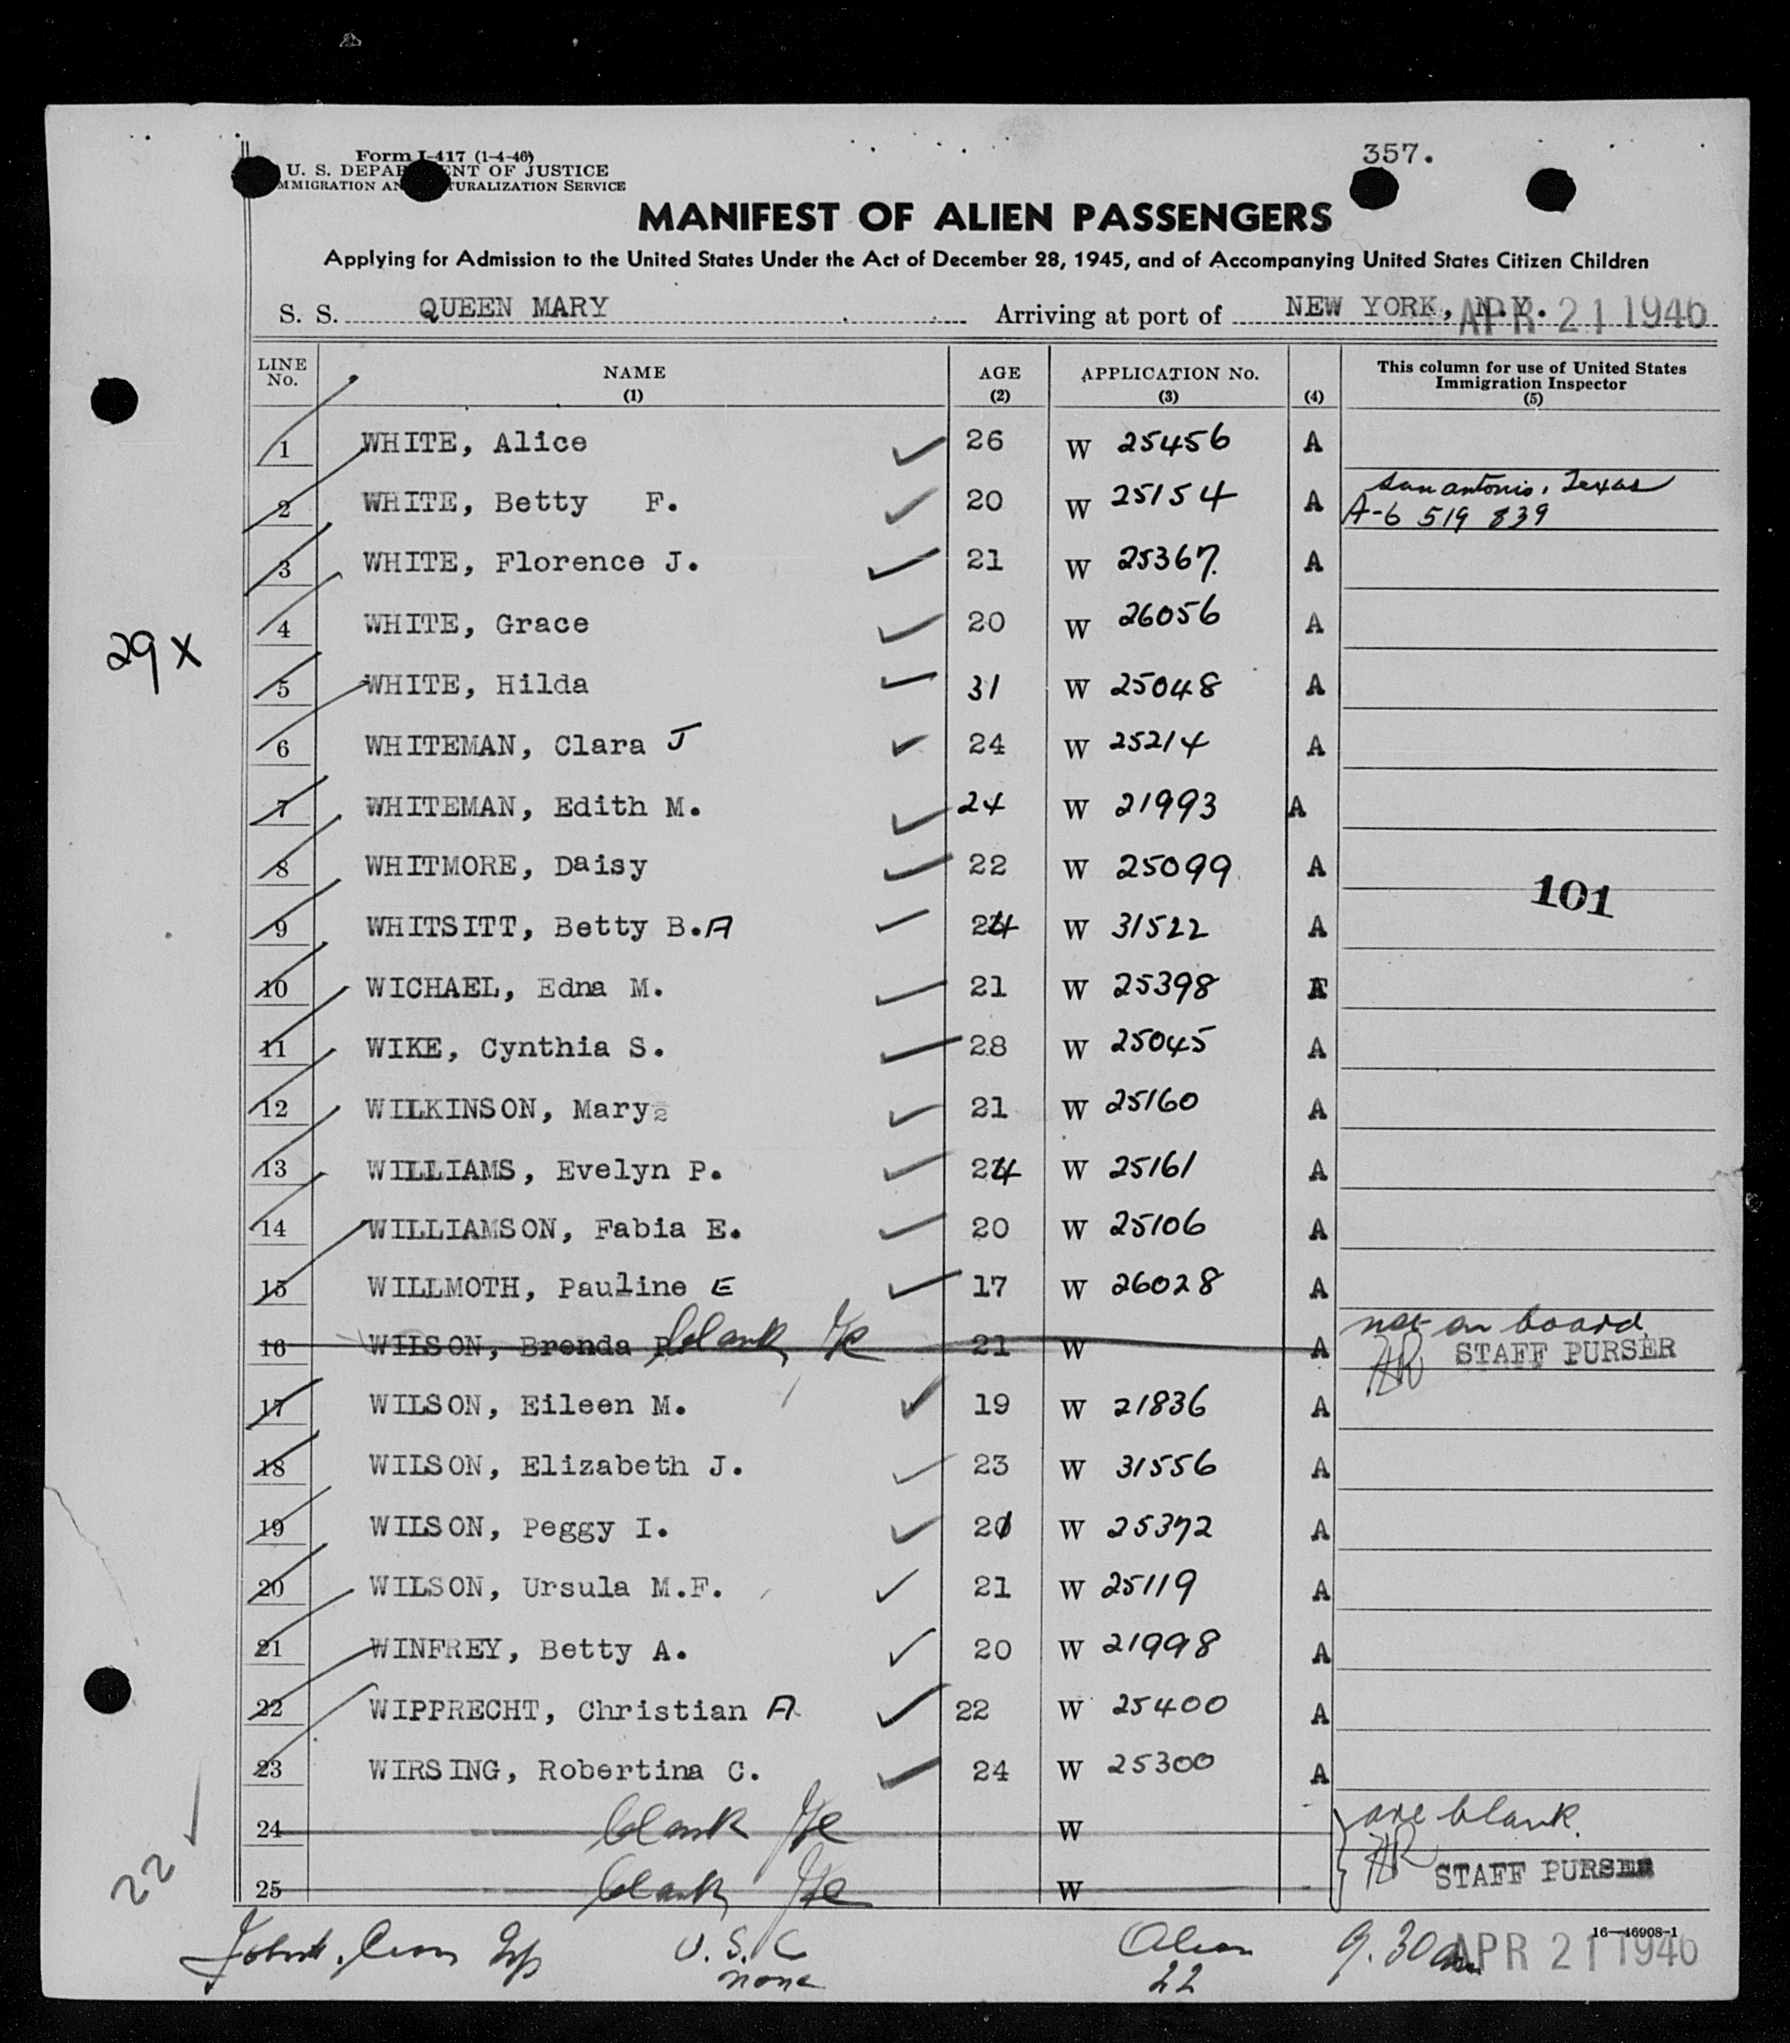 357.
Form I-417 (1-4-46)
U. S. DEPARTMENT OF JUSTICE
IMMIGRATION AND NATURALIZATION SERVICE
MANIFEST OF ALIEN PASSENGERS
Applying for Admission to the United States Under the Act of December 28, 1945, and of Accompanying United States Citizen Children
S. S. QUEEN MARY Arriving at port of NEW YORK, N.Y. APR 21 1946
LINE No. NAME (1) AGE (2) APPLICATION No. (3) (4) This column for use of United States Immigration Inspector (5)
1 WHITE, Alice 26 W 25456 A
2 WHITE, Betty F. 20 W 25154 A San Antonio, Texas
A-6 519 839
3 WHITE, Florence J. 21 W 25367. A
4 WHITE, Grace 20 W 26056 A
29 X
5 WHITE, Hilda 31 W 25048 A
6 WHITEMAN, Clara J 24 W 25214 A
7 WHITEMAN, Edith M. 24 W 21993 A
8 WHITMORE, Daisy 22 W 25099 A
101
9 WHITSITT, Betty B.A 24 W 31522 A
10 WICHAEL, Edna M. 21 W 25398 A
11 WIKE, Cynthia S. 28 W 25045 A
12 WILKINSON, Mary 21 W 25160 A
13 WILLIAMS, Evelyn P. 24 W 25161 A
14 WILLIAMSON, Fabia E. 20 W 25106 A
15 WILLMOTH, Pauline E 17 W 26028 A
16 WILSON, Brenda blank 21 W A not on board.
STAFF PURSER
17 WILSON, Eileen M. 19 W 21836 A
18 WILSON, Elizabeth J. 23 W 31556 A
19 WILSON, Peggy I. 21 W 25372 A
20 WILSON, Ursula M.F. 21 W 25119 A
21 WINFREY, Betty A. 20 W 21998 A
22 WIPPRECHT, Christian A 22 W 25400 A
23 WIRSING, Robertina C. 24 W 25300 A
24 blank W are blank.
22
25 blank W STAFF PURSER
16-46908-1
U. S. C Alien 9.30 am APR 21 1946
none 22